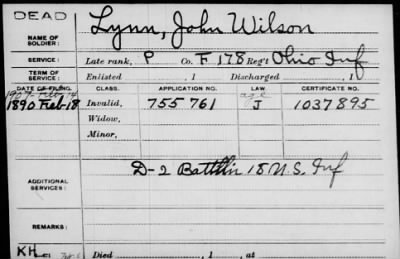 DEAD
NAME OF SOLDIER: Lynn, John Wilson
SERVICE: Late rank, P Co. F 178 Reg't Ohio Inf
TERM OF SERVICE: Enlisted , 1 Discharged , 1
DATE OF FILING. CLASS. APPLICATION NO. LAW. CERTIFICATE NO.
1907 Feb 14 age
1890 Feb 18 Invalid, 755 761 J 1037895
Widow,
Minor,
ADDITIONAL SERVICES: D-2 Battl'n 18 U.S. Inf
REMARKS:
KH
Died , 1 , at